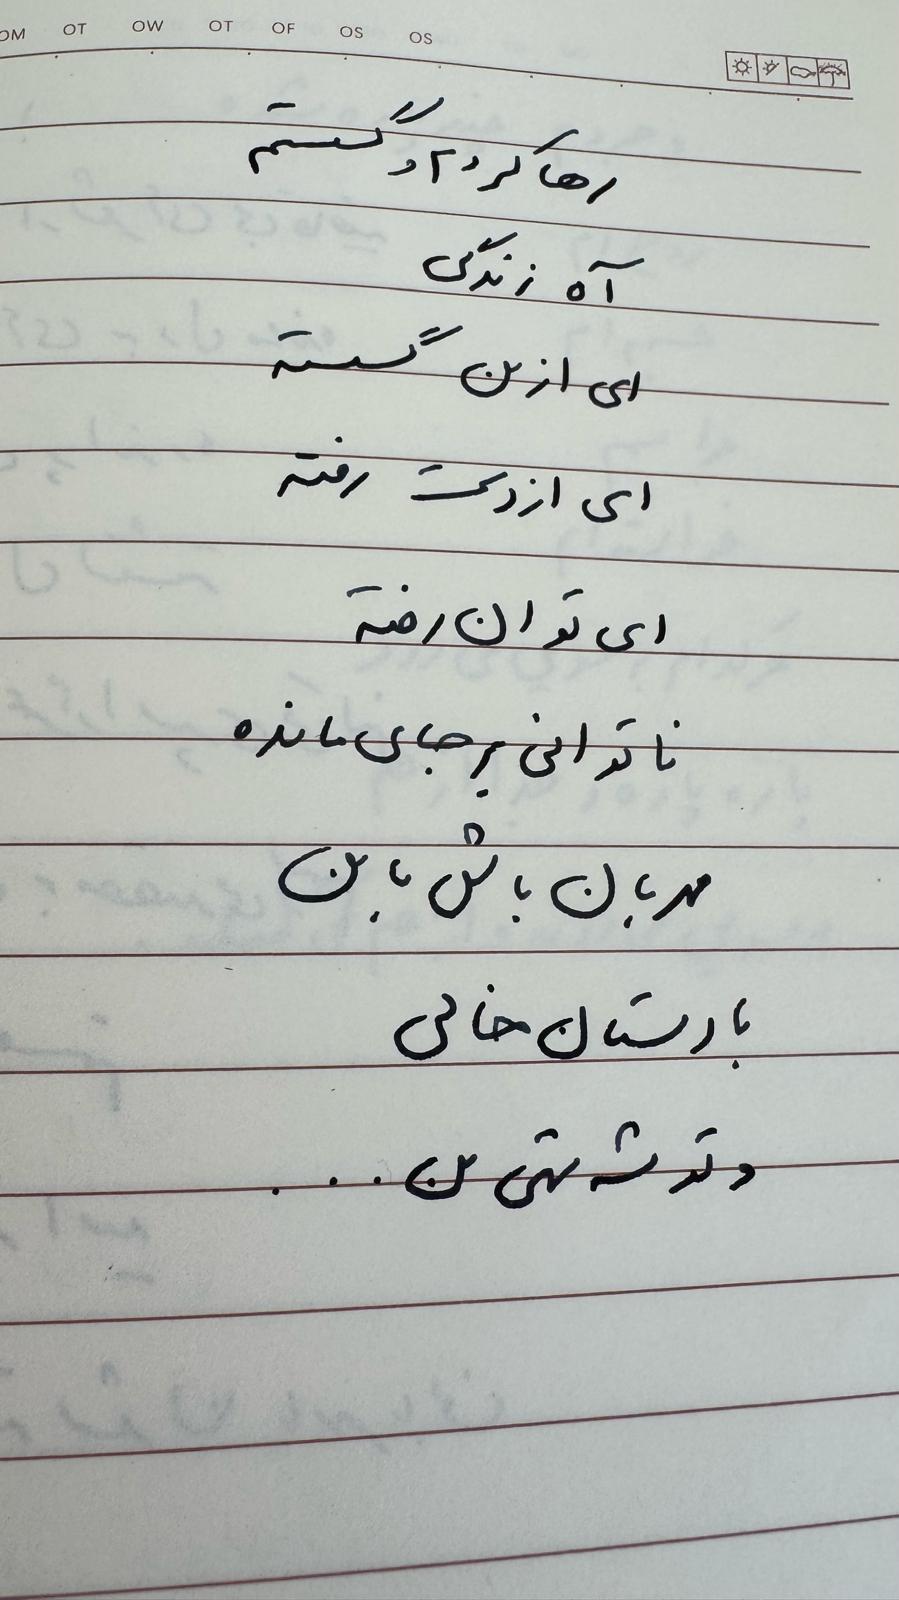 OM OT OW OT OF OS OS
رها کردم و گسستم
آه زندگی
ای از من گسسته
ای از دست رفته
ای توان رفته
ناتوانی برجای مانده
مهربان باش با من
با دستان خالی
و توشه تهی من . . . .